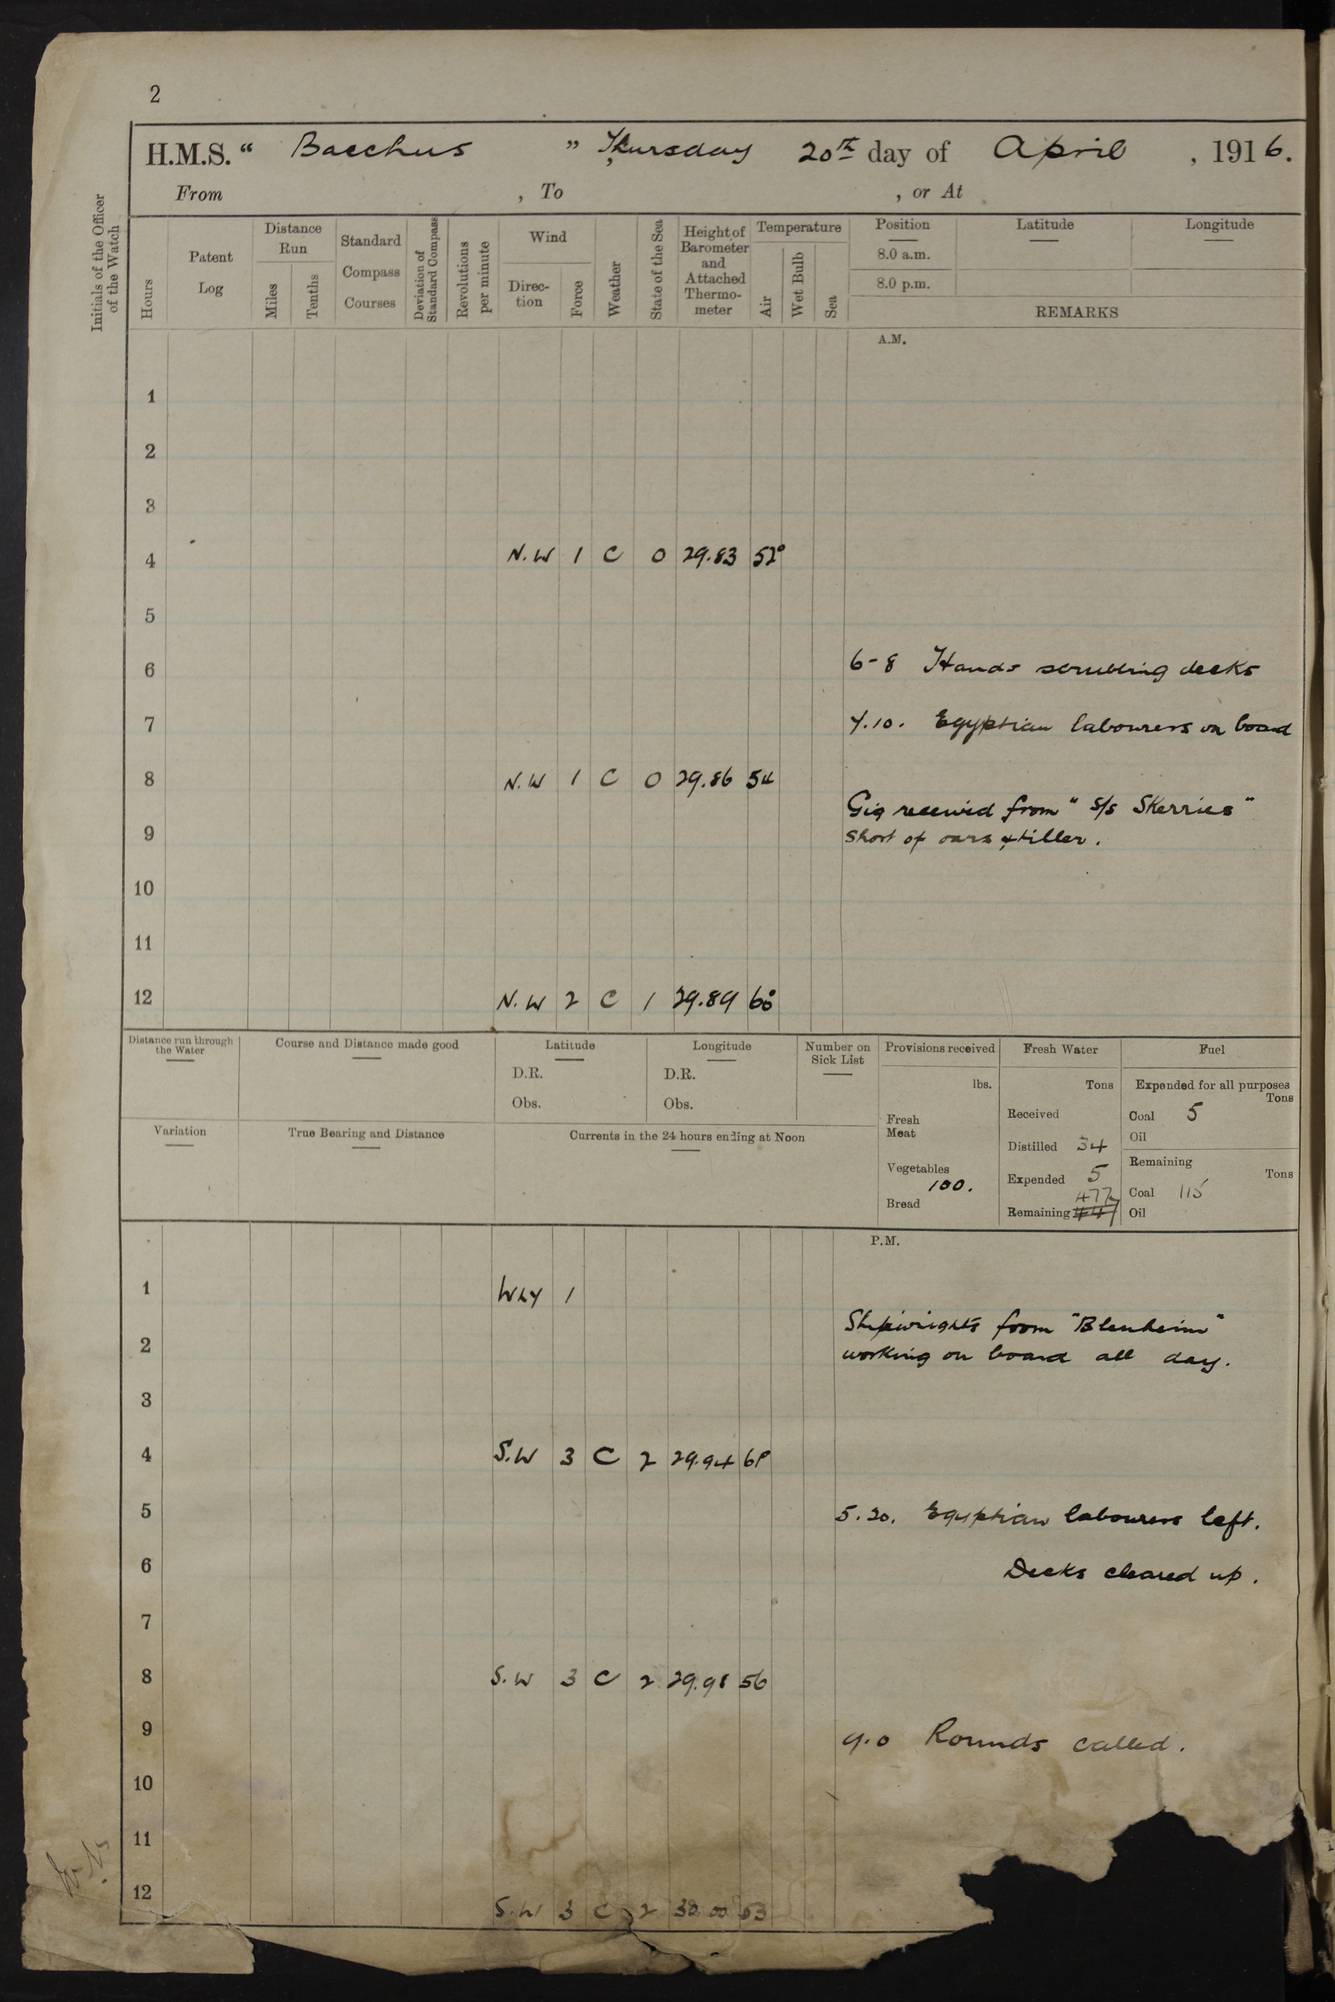 2
H.M.S. “ Bacchus ” Thursday 20th day of April , 1916.
From , To , or At
Initials of the Officer of the Watch
Hours
Patent Log
Distance Run
Miles
Tenths
Standard Compass Courses
Deviation of Standard Compass
Revolutions per minute
Wind
Direction
Force
Weather
State of the Sea
Height of Barometer and Attached Thermometer
Temperature
Air
Wet Bulb
Sea
Position Latitude Longitude
8.0 a.m.
8.0 p.m.
REMARKS
A.M.
1
2
3
4 N.W 1 C 0 29.83 52°
5
6 6-8 Hands scrubbing decks
7 7.10. Egyptian labourers on board
8 N.W 1 C 0 29.86 54
Gig received from "S/S Skerries"
9 Short of oars & tiller.
10
11
12 N.W 2 C 1 29.89 60°
Distance run through the Water
Course and Distance made good
Latitude
D.R.
Obs.
Longitude
D.R.
Obs.
Number on Sick List
Variation
True Bearing and Distance
Currents in the 24 hours ending at Noon
Provisions received
lbs.
Fresh Meat
Vegetables
100.
Bread
Fresh Water
Tons
Received
Distilled 34
Expended 5
477
Remaining
Fuel
Expended for all purposes
Tons
Coal 5
Oil
Remaining
Tons
Coal 115
Oil
P.M.
1 WLY 1
Shipwrights from "Blenheim"
2 working on board all day.
3
4 S.W 3 C 2 29.94 61°
5 5.20. Egyptian labourers left.
6 Decks cleared up.
7
8 S.W 3 C 2 29.98 56
9 9.0 Rounds called.
10
11
12 S.W 3 C 2 30.00 53